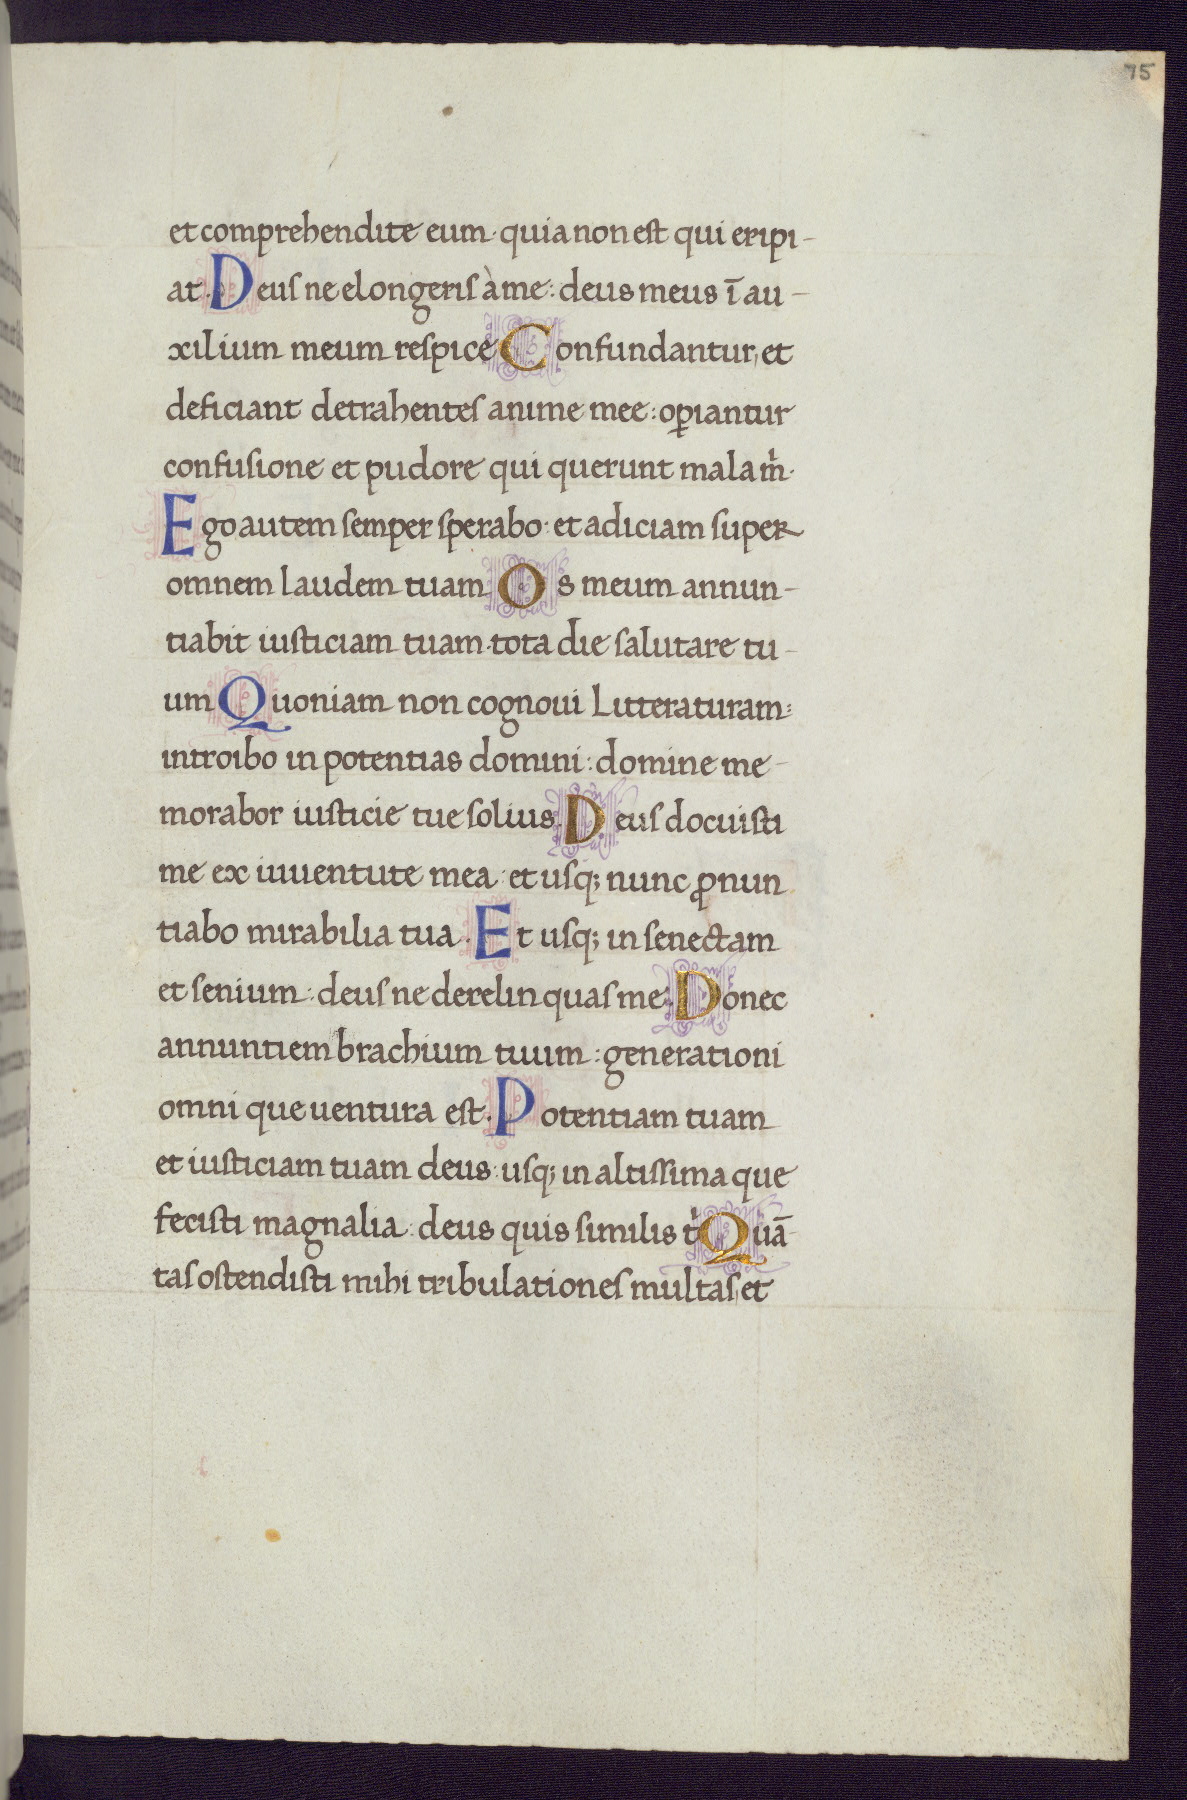 75
et comprehendite eum· quia non est qui eripi-
at. Deus ne elongeris à me: deus meus ī au-
xilium meum respice Confundantur, et
deficiant detrahentes anime mee: oꝑiantur
confusione et pudore qui querunt mala m̉.
Ego autem semper sperabo: et adiciam super
omnem laudem tuam. Os meum annun-
tiabit iusticiam tuam· tota die salutare tu-
um Quoniam non cognoui litteraturam:
introibo in potentias domini: domine me-
morabor iusticie tue solius. Deus docuisti
me ex iuuentute mea: et usq; nunc ꝓnun
tiabo mirabilia tua. Et usq; in senectam
et senium: deus ne derelinquas me: Donec
annuntiem brachium tuum: generationi
omni que uentura est. Potentiam tuam
et iusticiam tuam deus: usq; in altissima que
fecisti magnalia: deus quis similis t̉ Quā-
tas ostendisti mihi tribulationes multas, et